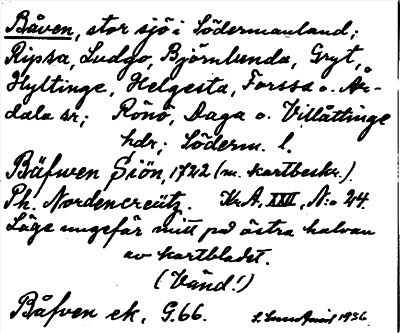 Båven, stor sjö i Södermanland;
Ripsa, Ludgo, Björnlunda, Gryt,
Hyltinge, Helgesta, Forssa o. År-
dala sr; Rönö, Daga o. Villåttinge
hdr; Söderm. l.
Båfwen Siön, 1722 (m. kartbeskr.).
Ph. Nordencreütz. K.A. XXVI, N:o 24.
Läge ungefär mitt på östra halvan
av kartbladet.
(Vänd!)
Båfven ek, G.66. 1936